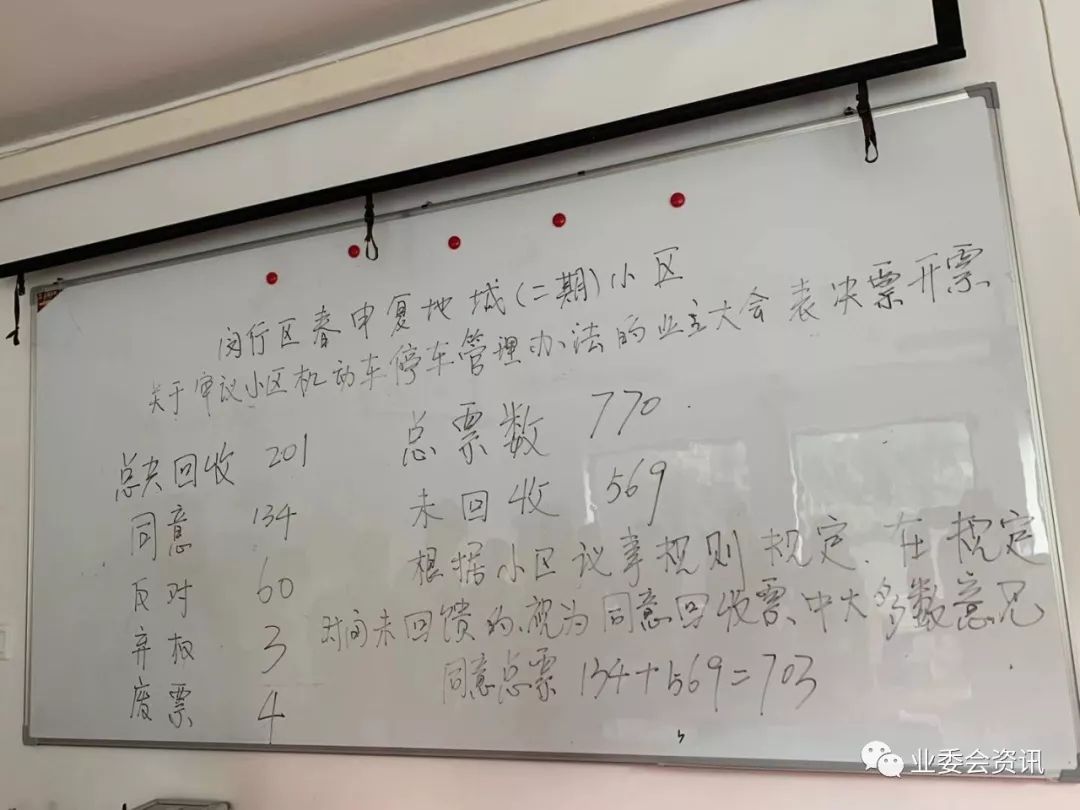 闵行区春申复地城(二期)小区
关于审议小区机动车停车管理办法的业主大会表决票开票
总共回收 201
总票数 770
同意 134
未回收 569
反对 60
根据小区议事规则规定.在规定
弃权 3
时间未回馈的、视为同意回收票、中大多数意见
废票 4
同意总票 134+569=703
业委会资讯